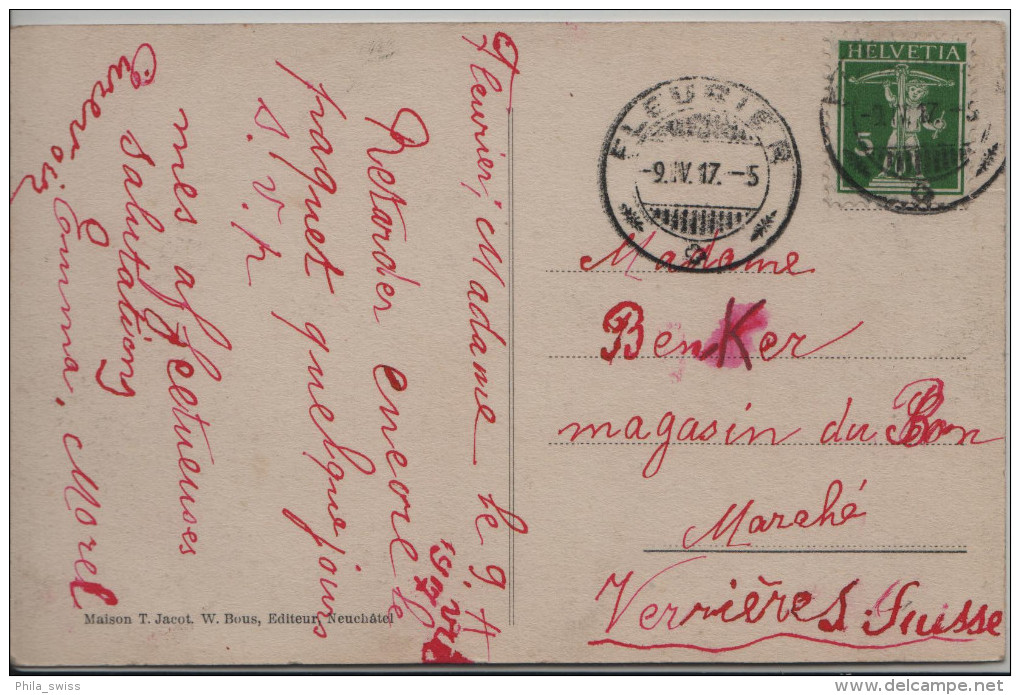 Fleurier, Madame le 9 A
Retarder encore le
paquet quelque jours
s. v. p
mes affectueuses
salutations
Emma. Morel
HELVETIA
5
FLEURIER
-9.IV.17.-5
Madame
Benker
magasin du Bon
Marché
Verrières. Suisse
Maison T. Jacot. W. Bous, Editeur, Neuchâtel
Phila_swiss
www.delcampe.net